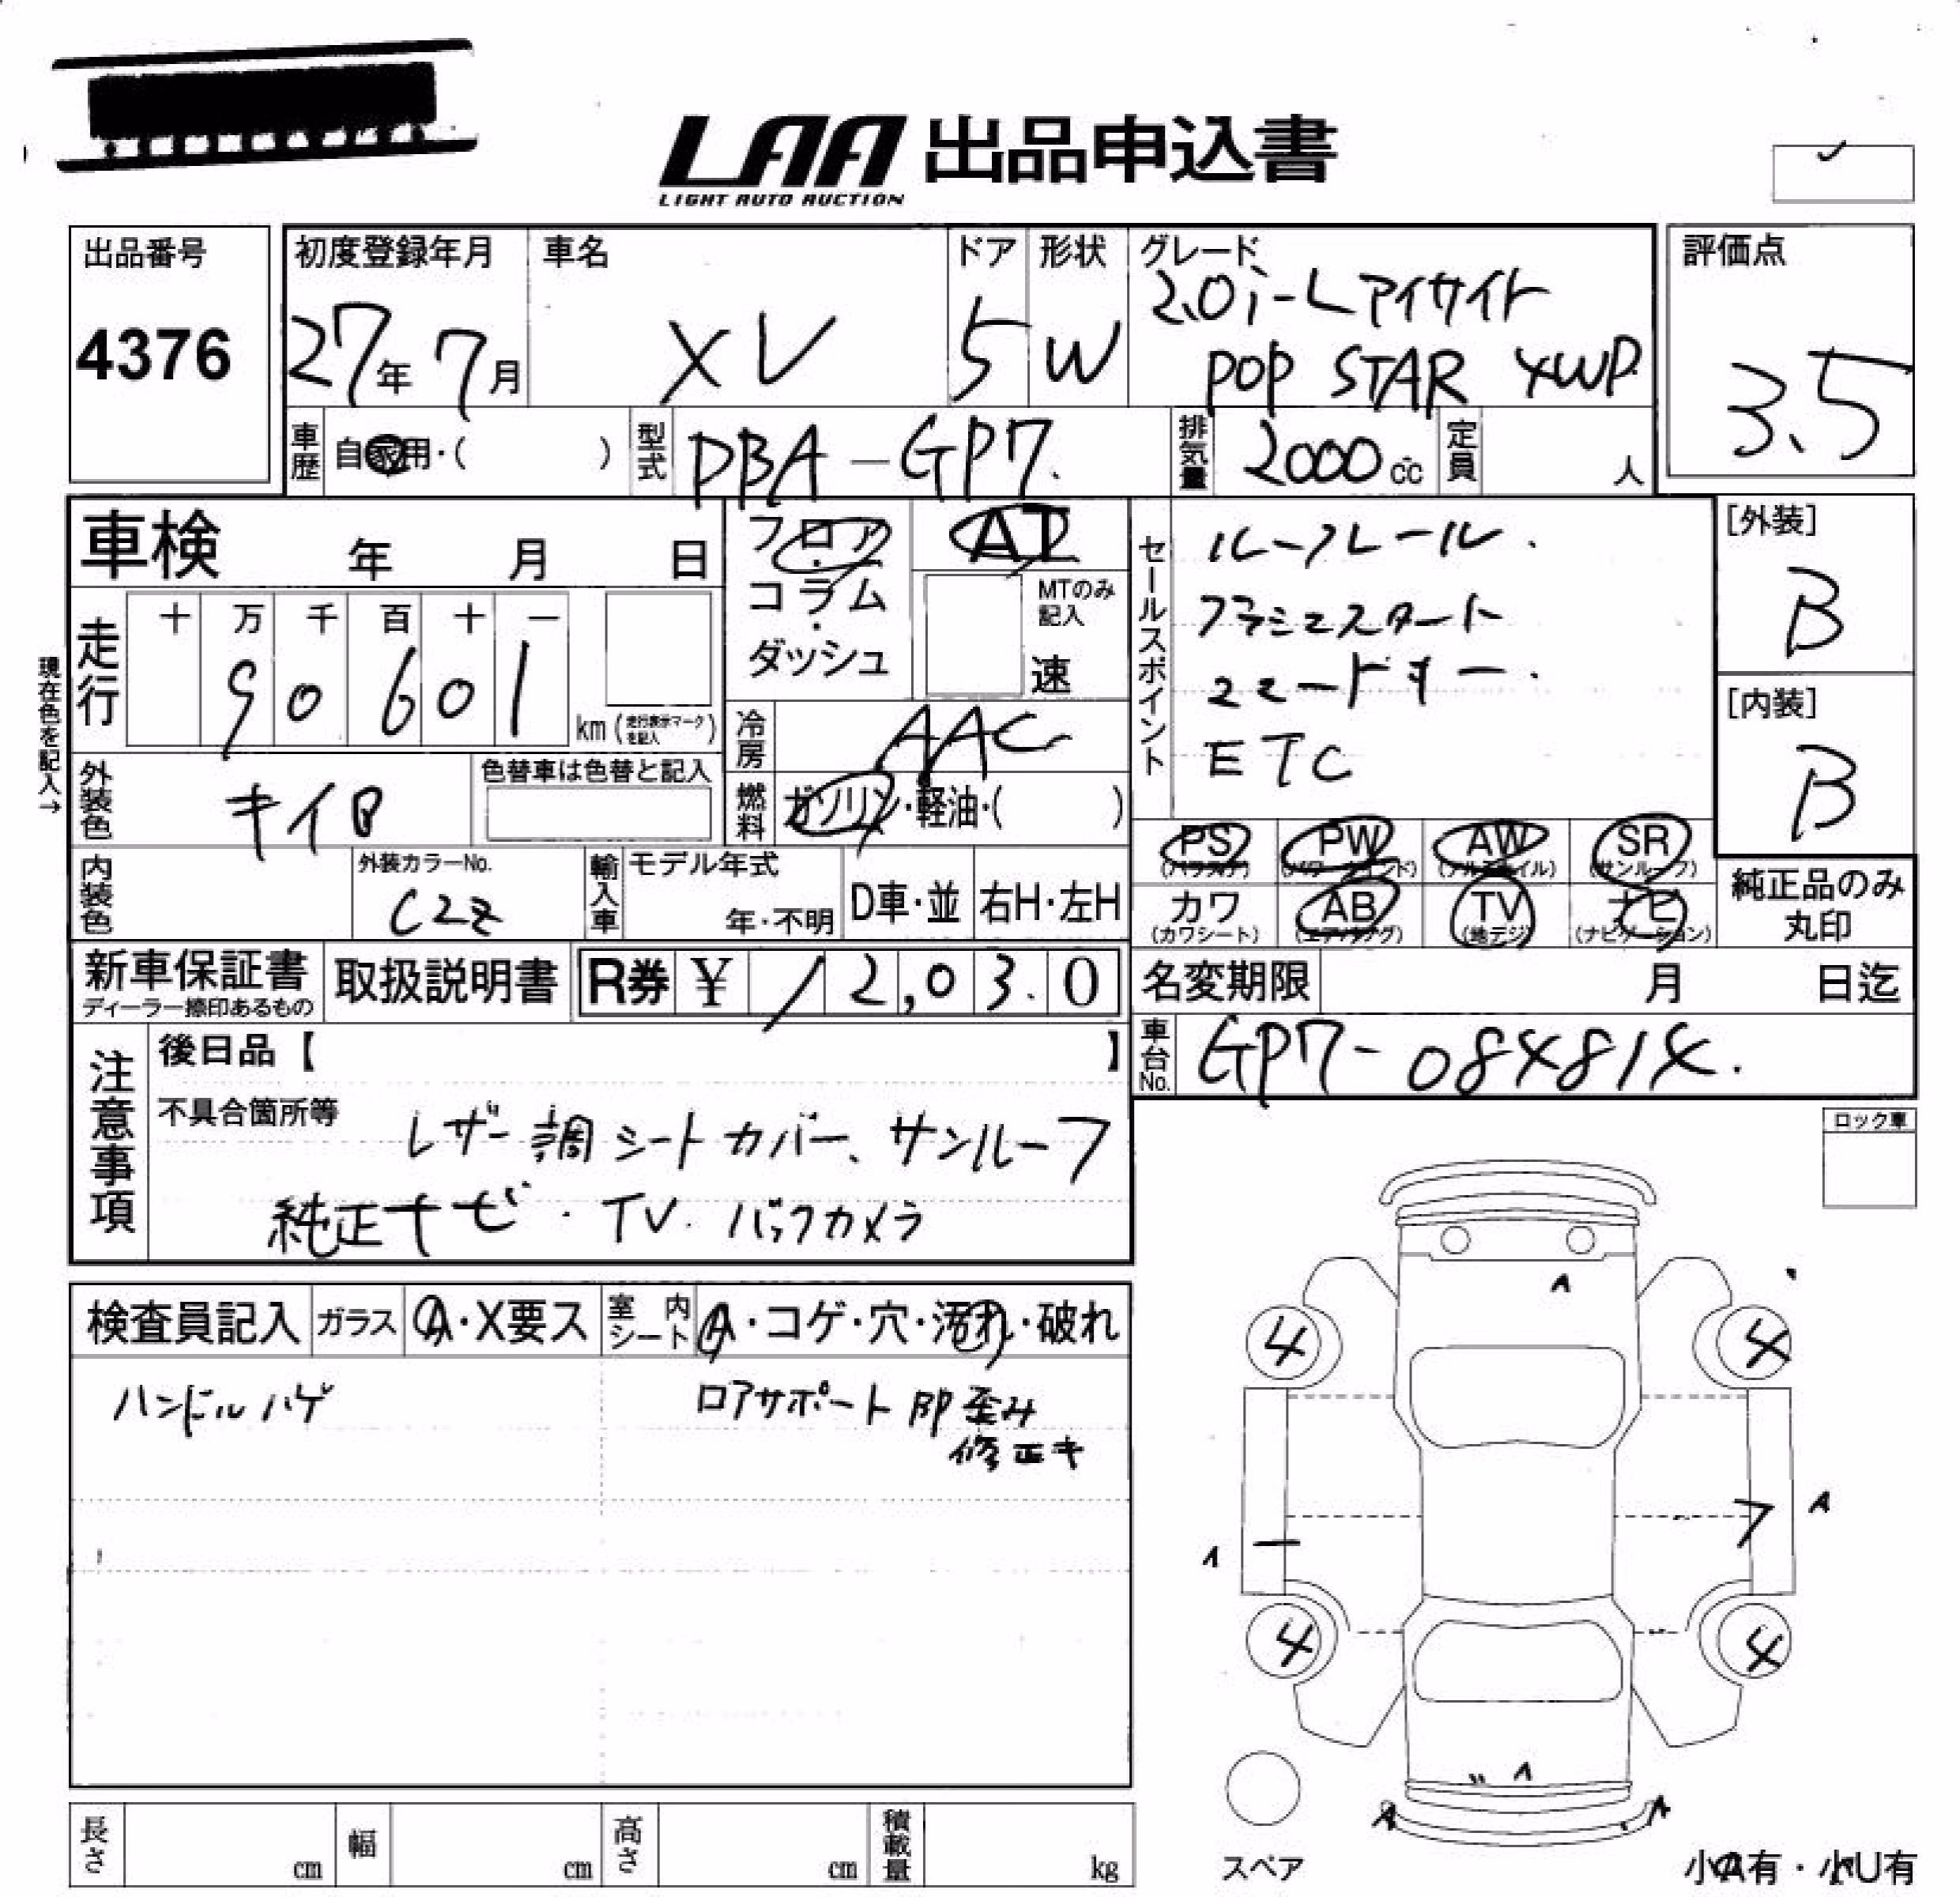 LAA 出品申込書
LIGHT AUTO AUCTION
出品番号
4376
初度登録年月
27年 7月
車名
XV
ドア
5
形状
W
グレード
2.0i-L アイサイト
POP STAR 4WD
評価点
3.5
車歴
自家用・( )
型式
DBA-GP7.
排気量
2000cc
定員
人
車検 年 月 日
走行
十 万 千 百 十 一
90601
km (走行表示マークを記入)
現在色を記入→
フロア・
コラム・
ダッシュ
AT
MTのみ
記入
速
冷房
AAC
燃料
ガソリン・軽油・( )
セールスポイント
ルーフレール.
プッシュスタート
スマートキー.
ETC
[外装]
B
[内装]
B
外装色
キイロ
色替車は色替と記入
内装色
外装カラーNo.
C2Z
輸入車
モデル年式
年・不明
D車・並
右H・左H
PS
(パワステ)
PW
(パワーウインド)
AW
(アルミホイル)
SR
(サンルーフ)
カワ
(カワシート)
AB
(エアバッグ)
TV
(地デジ)
ナビ
(ナビゲーション)
純正品のみ
丸印
新車保証書
ディーラー捺印あるもの
取扱説明書
R券 ¥ 12,030
名変期限 月 日迄
車台No.
GP7-084814.
注意事項
後日品【 】
不具合箇所等
レザー調シートカバー、サンルーフ
純正ナビ・TV. バックカメラ
ロック車
検査員記入
ガラス
A・X要ス
室内シート
A・コゲ・穴・汚れ・破れ
ハンドルハゲ
ロアサポート部歪み
修正キ
A
4 4
A
A
4 4
A
A A
スペア
小A有・小U有
長さ cm
幅 cm
高さ cm
積載量 kg